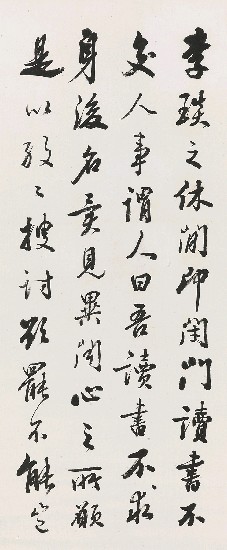 李琰之休閒即閉門讀書不
交人事謂人曰吾讀書不求
身後名異見異聞心之所願
是以孜〻搜討欲罷不能豈